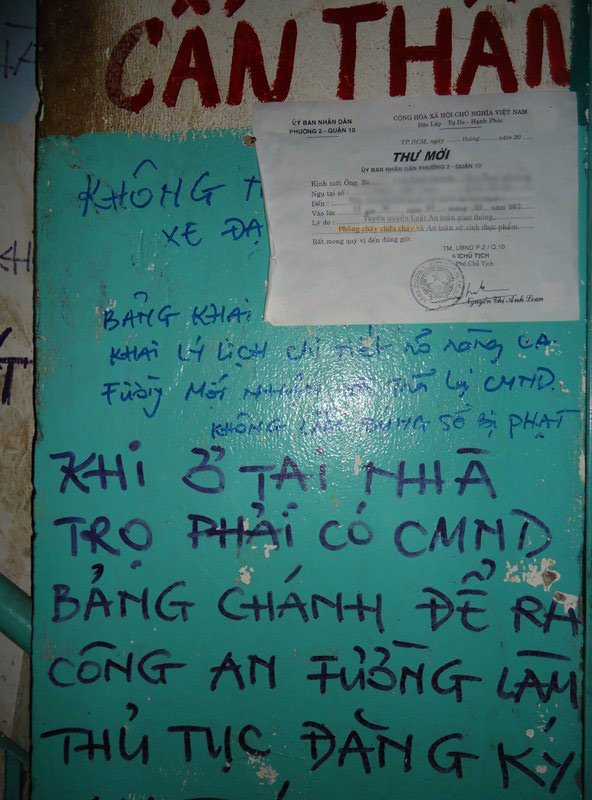 CẨN THẬN
ỦY BAN NHÂN DÂN
PHƯỜNG 2 - QUẬN 10
CỘNG HÒA XÃ HỘI CHỦ NGHĨA VIỆT NAM
Độc Lập - Tự Do - Hạnh Phúc
TP.HCM, ngày ...... tháng ...... năm 20 ....
THƯ MỜI
ỦY BAN NHÂN DÂN PHƯỜNG 2 - QUẬN 10
Kính mời Ông, Bà
Ngụ tại số :
Đến :
Vào lúc
Lý do : Tuyên truyền Luật An toàn giao thông,
Phòng cháy chữa cháy và An toàn vệ sinh thực phẩm.
Rất mong quý vị đến đúng giờ.
TM. UBND P.2 / Q.10
CHỦ TỊCH
Phó Chủ Tịch
Nguyễn Thị Ánh Loan
KHÔNG
XE ĐẠ
BẢNG KHAI
KHAI LÝ LỊCH chi tiết RỎ RÀNG CA
FƯỜNG MỚI NHẬN CMND.
KHÔNG SỐ BỊ PHẠT
KHI Ở TẠI NHÀ
TRỌ PHẢI CÓ CMND
BẢNG CHÁNH ĐỂ RA
CÔNG AN FƯỜNG LÀM
THỦ TỤC ĐĂNG KÝ